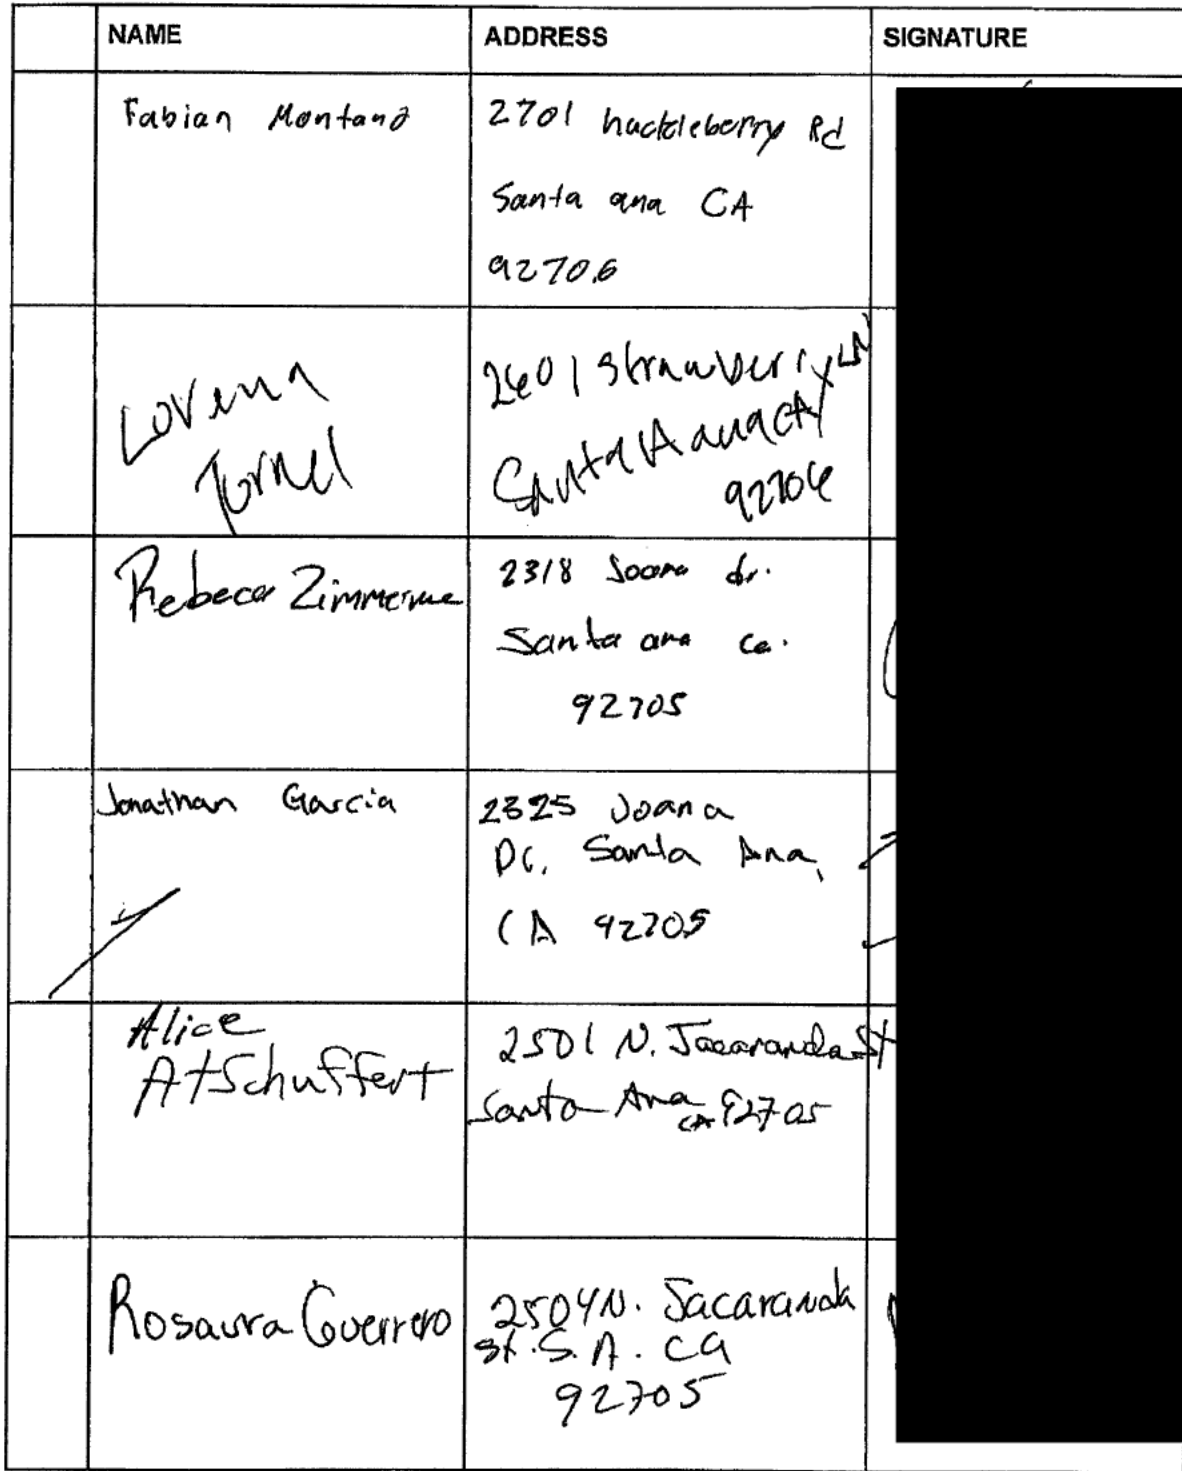 NAME ADDRESS SIGNATURE
Fabian Montano 2701 huckleberry Rd
Santa ana CA
92706
Lorena 2601 Strawberry LN
Tornel Santa Aana CA
92706
Rebeca Zimmerme 2318 Joana dr.
Santa ana Ca.
92705
Jonathan Garcia 2325 Joana
Dr. Santa Ana,
CA 92705
Alice 2501 N. Jacaranda St
AtSchuffert Santa Ana CA 92705
Rosaura Guerrero 2504 N. Jacaranda
st. S. A. Ca
92705